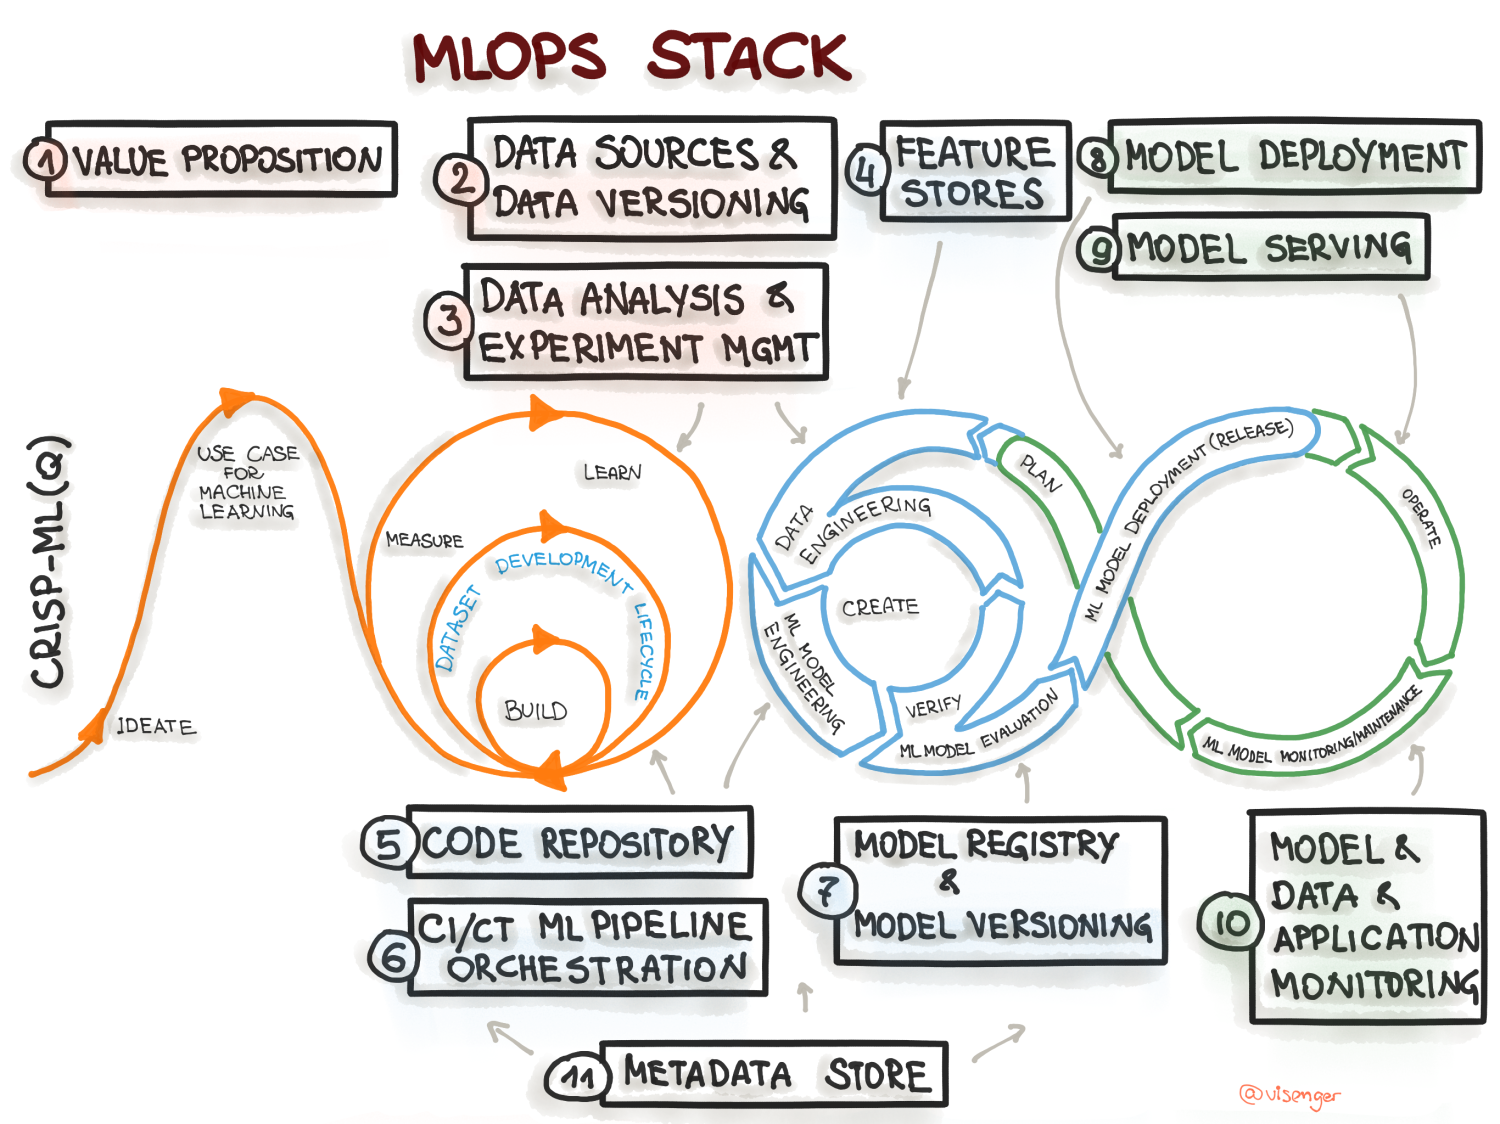 MLOPS STACK
1 VALUE PROPOSITION
2 DATA SOURCES &
DATA VERSIONING
3 DATA ANALYSIS &
EXPERIMENT MGMT
4 FEATURE
STORES
8 MODEL DEPLOYMENT
9 MODEL SERVING
CRISP-ML(Q)
IDEATE
USE CASE
FOR
MACHINE
LEARNING
MEASURE
LEARN
DATASET DEVELOPMENT LIFECYCLE
BUILD
DATA
ENGINEERING
CREATE
ML MODEL
ENGINEERING
VERIFY
ML MODEL EVALUATION
PLAN
ML MODEL DEPLOYMENT (RELEASE)
OPERATE
ML MODEL MONITORING/MAINTENANCE
5 CODE REPOSITORY
6 CI/CT ML PIPELINE
ORCHESTRATION
7 MODEL REGISTRY
&
MODEL VERSIONING
10 MODEL &
DATA &
APPLICATION
MONITORING
11 METADATA STORE
@visenger